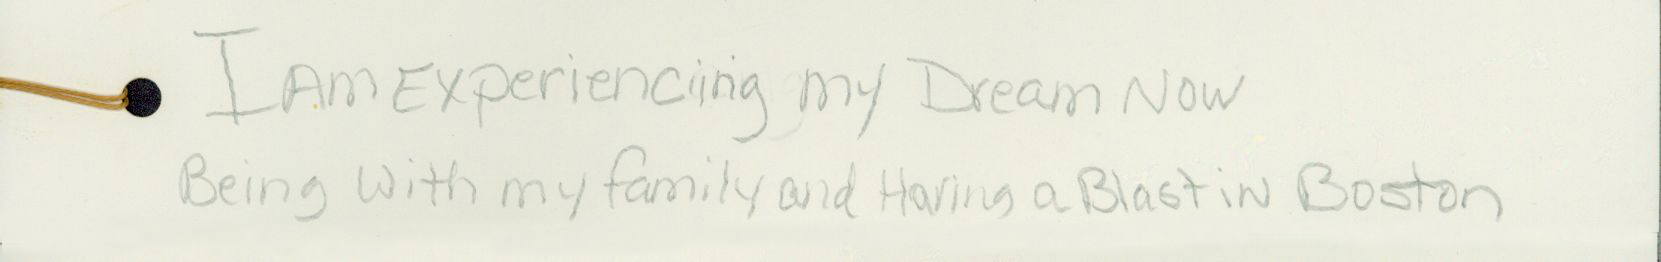 I Am Experiencing my Dream Now
Being With my family and Having a Blast in Boston